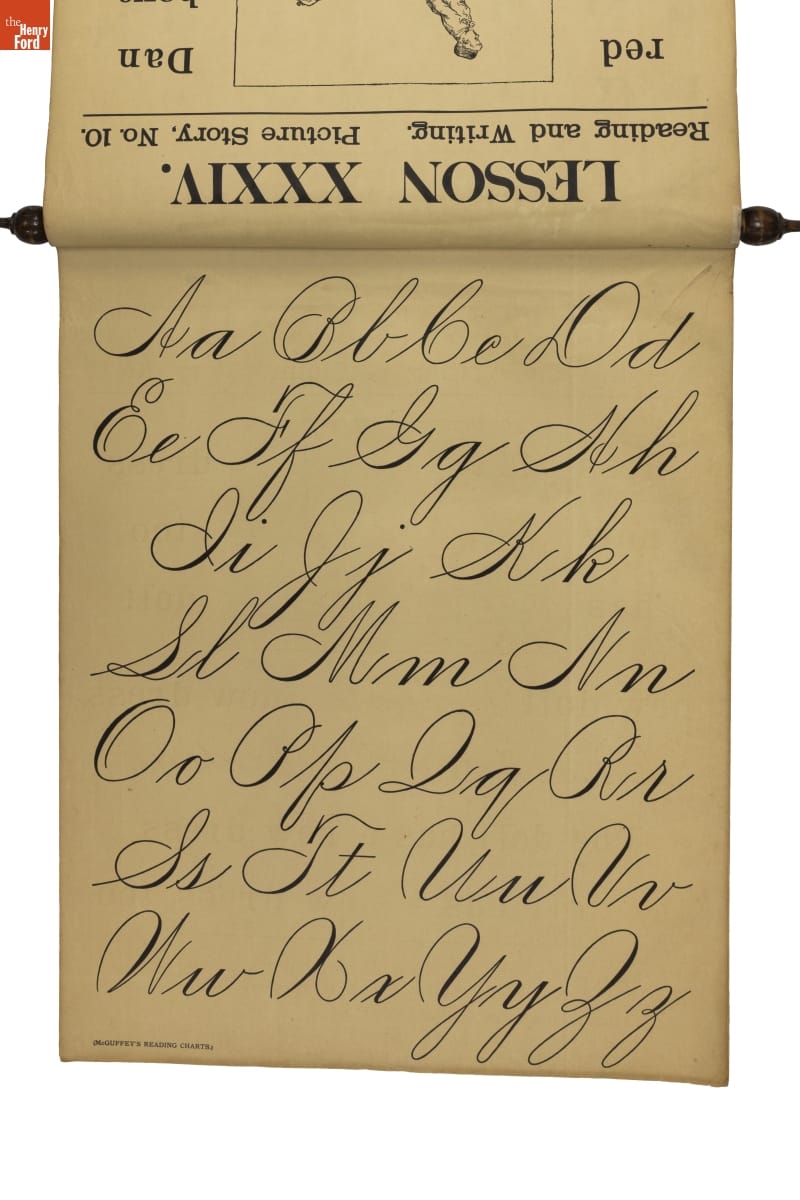 the
Henry
Ford
Dan red
Reading and Writing. Picture Story, No. 10.
LESSON XXXIV.
Aa Bb Cc Dd
Ee Ff Gg Hh
Ii Jj Kk
Ll Mm Nn
Oo Pp Qq Rr
Ss Tt Uu Vv
Ww Xx Yy Zz
(McGUFFEY'S READING CHARTS.)